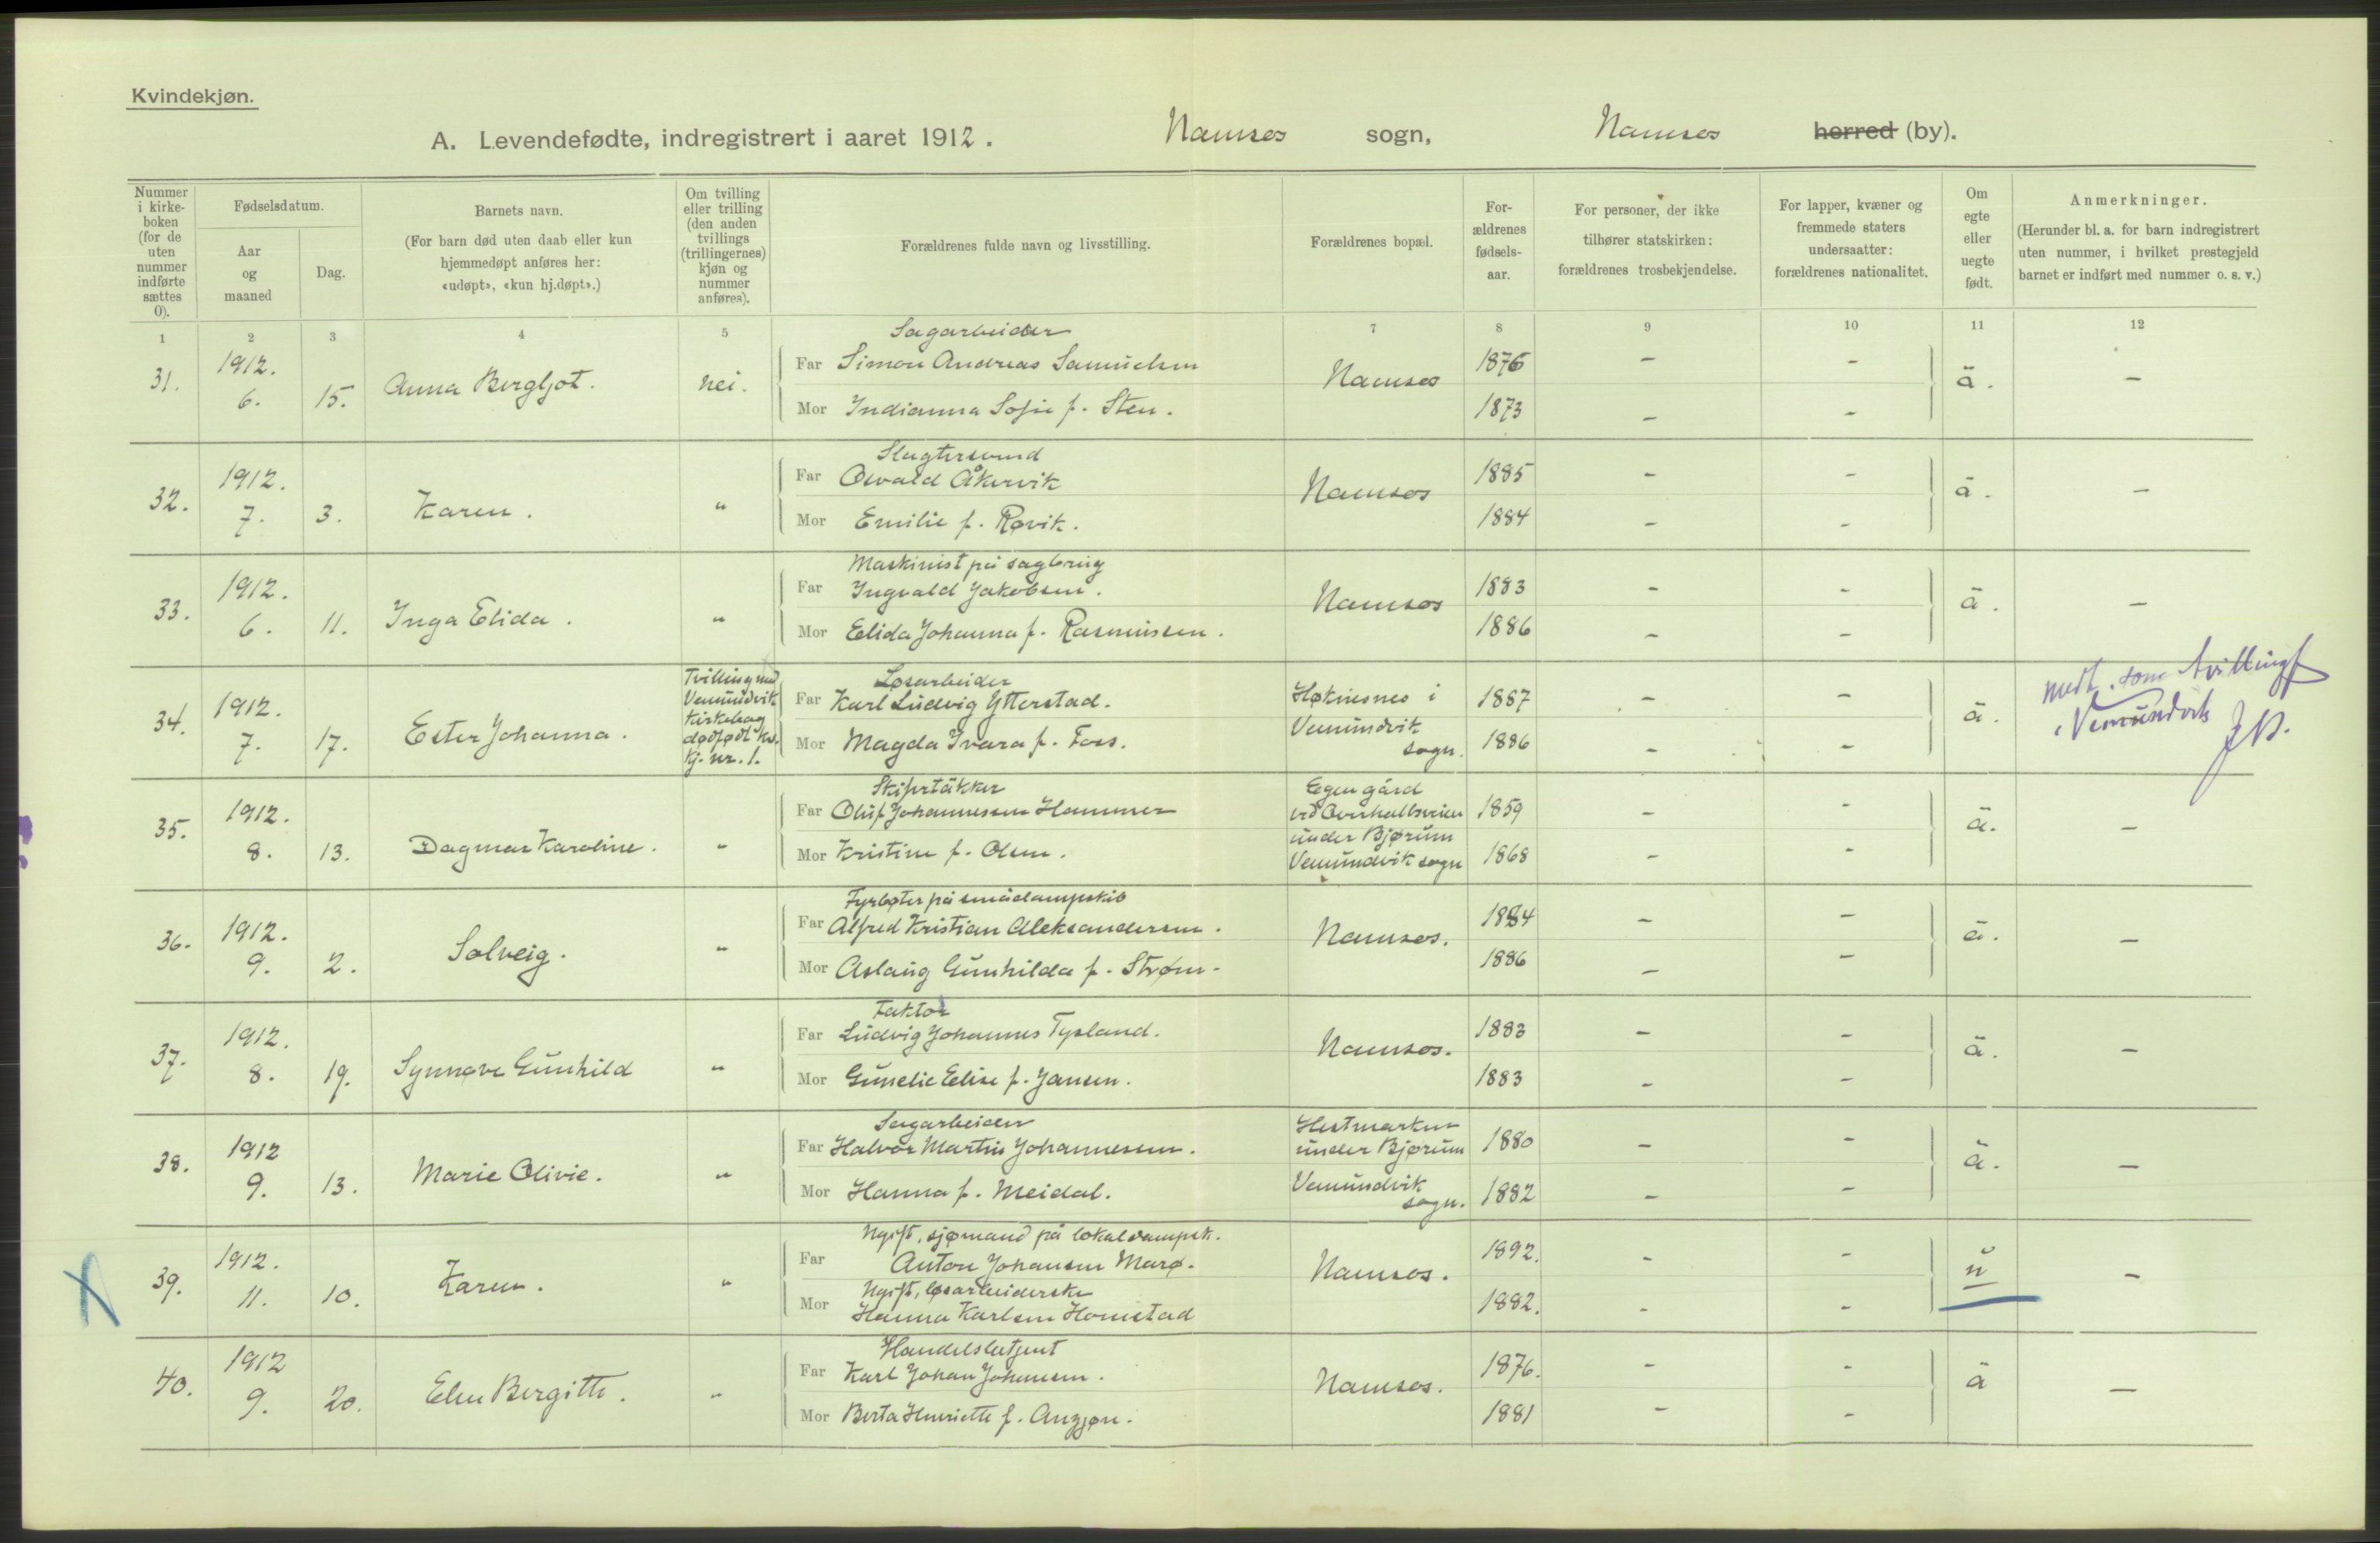 Kvindekjøn.
A. Levendefødte, indregistrert i aaret 1912. Namsos sogn, Namsos herred (by).
Nummer i kirkeboken (for de uten nummer indførte sættes 0).
Fødselsdatum.
Aar og maaned
Dag.
Barnets navn.
(For barn død uten daab eller kun hjemmedøpt anføres her: «udøpt», «kun hj.døpt».)
Om tvilling eller trilling (den anden tvillings (trillingernes) kjøn og nummer anføres).
Forældrenes fulde navn og livsstilling.
Forældrenes bopæl.
For-ældrenes fødsels-aar.
For personer, der ikke tilhører statskirken: forældrenes trosbekjendelse.
For lapper, kvæner og fremmede staters undersaatter: forældrenes nationalitet.
Om egte eller uegte født.
Anmerkninger.
(Herunder bl. a. for barn indregistrert uten nummer, i hvilket prestegjeld barnet er indført med nummer o. s. v.)
1 2 3 4 5 7 8 9 10 11 12
Sagarbeider
31. 1912. 6. 15. Anna Bergljot. nei. Far Simon Andreas Samuelsen Namsos 1876 - - ä. -
Mor Indianna Sofie f. Sten. 1873 - -
Slagtersvend
32. 1912. 7. 3. Karen. " Far Osvald Åkervik Namsos 1885 - - ä. -
Mor Emilie f. Røvik. 1884 - -
Maskinist på sagbrug
33. 1912. 6. 11. Inga Elida. " Far Ingvald Jakobsen. Namsos 1883 - - ä. -
Mor Elida Johanna f. Rasmussen. 1886 - -
Løsarbeider
34. 1912. 7. 17. Ester Johanna. Tvilling med Vemundvik kirkebog dødfødt kv. kj. nr. 1. Far Karl Ludvig Ytterstad. Høknesnes i Vemundvik sogn. 1887 - - ä. medt. som tvilling i Vemundvik
Mor Magda Ivara f. Foss. 1886 - -
35. 1912. 8. 13. Dagmar Karoline. " Far Oluf Johannessen Hammer Egen gård ved Overhallsveien under Bjørum Vemundvik sogn 1859 - - ä. -
Mor Kristine f. Olsen. 1868 - -
Fyrbøter på smådampskib
36. 1912. 9. 2. Solveig. " Far Alfred Kristian Aleksandersen. Namsos. 1884 - - ä. -
Mor Aslaug Gunhilda f. Strøm. 1886 - -
Faktor
37. 1912. 8. 19. Synnøve Gunhild " Far Ludvig Johannes Tysland. Namsos. 1883 - - ä. -
Mor Gunelie Elise f. Jansen. 1883 - -
Sagarbeider
38. 1912 9. 13. Marie Olivie. " Far Halvor Martin Johannessen. Hestmarken under Bjørum Vemundvik sogn. 1880 - - ä. -
Mor Hanna f. Meidal. 1882 - -
Ugift, sjømand på lokaldampsk.
39. 1912. 11. 10. Karen. " Far Anton Johansen Marø. Namsos. 1892. - - u -
Ugift, løsarbeiderske
Mor Hanna Karlsen Homstad 1882. - -
Handelsbetjent
40. 1912 9. 20. Elen Bergitte. " Far Karl Johan Johansen. Namsos. 1876. - - ä -
Mor Berta Henriette f. 1881 - -